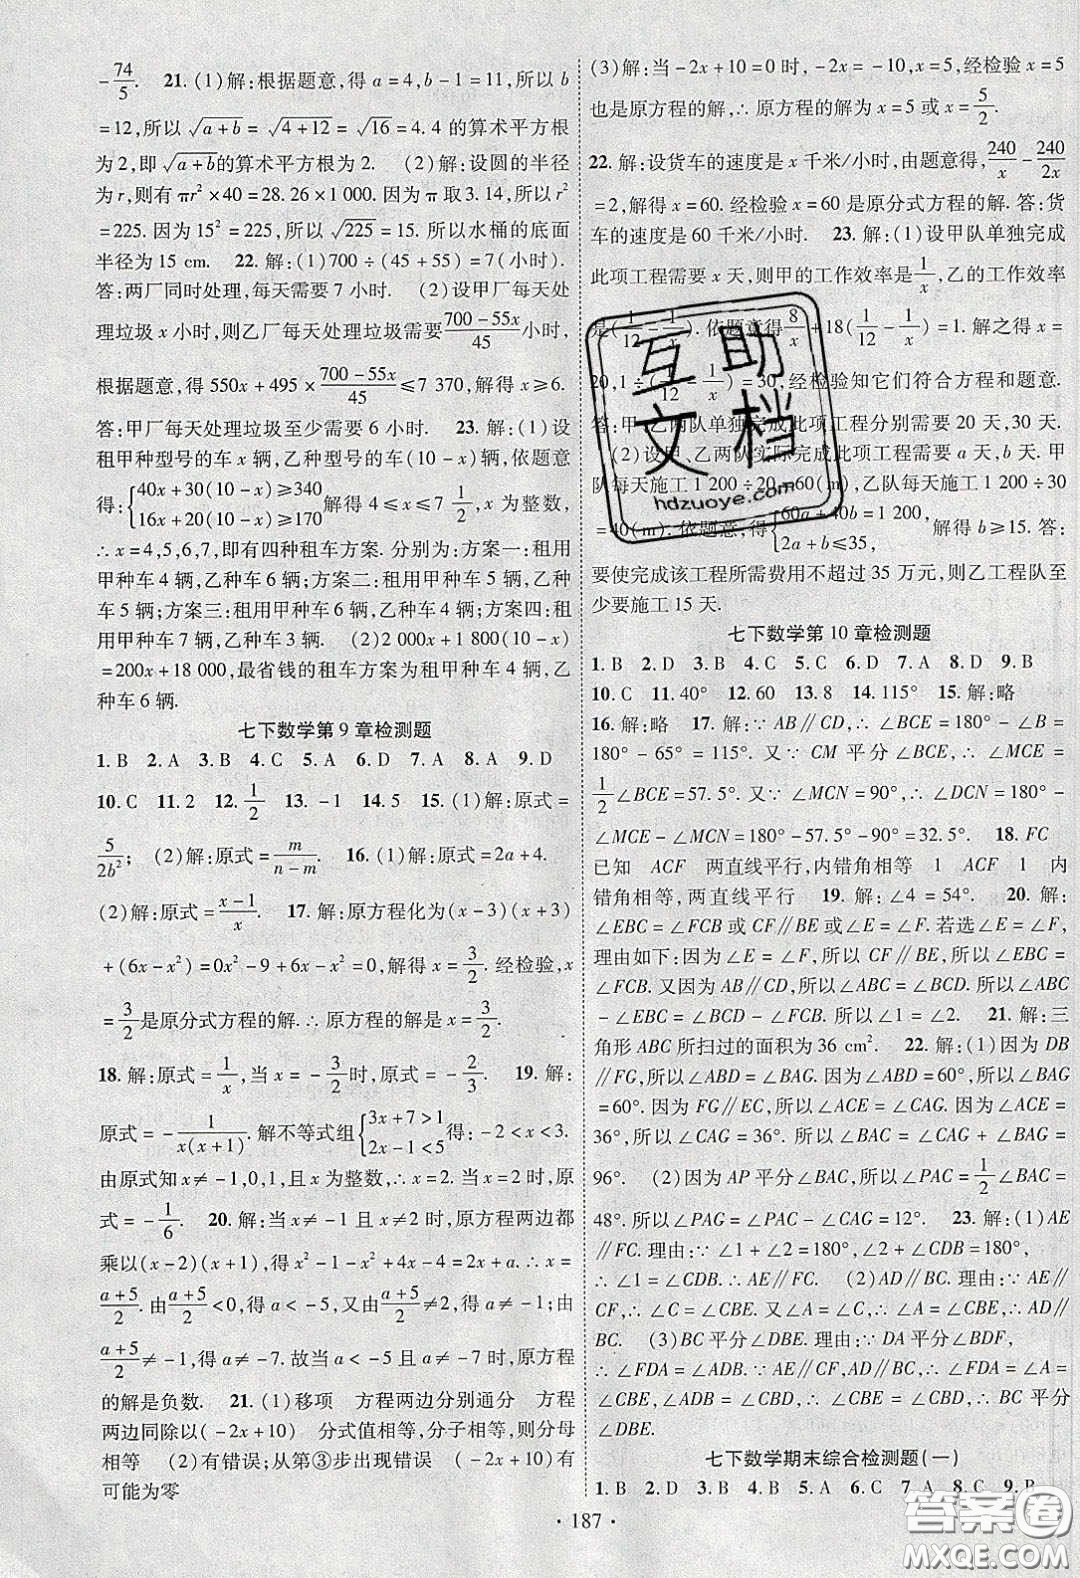 -74/5. 21. (1)解:根据题意,得 a=4,b-1=11,所以 b
=12,所以 √(a+b)=√(4+12)=√16=4. 4 的算术平方根
为 2,即 √(a+b)的算术平方根为 2. (2)解:设圆的半径
为 r,则有 πr²×40=28.26×1 000. 因为 π 取 3.14,所以 r²
=225. 因为 15²=225,所以 √225=15. 所以水桶的底面
半径为 15 cm. 22. 解:(1)700÷(45+55)=7(小时).
答:两厂同时处理,每天需要 7 小时. (2)设甲厂每天处
理垃圾 x 小时,则乙厂每天处理垃圾需要(700-55x)/45小时,
根据题意,得 550x+495×(700-55x)/45≤7 370,解得 x≥6.
答:甲厂每天处理垃圾至少需要 6 小时. 23. 解:(1)设
租甲种型号的车 x 辆,乙种型号的车(10-x)辆,依题意
得:{40x+30(10-x)≥340 16x+20(10-x)≥170 解得 4≤x≤7 1/2,x 为整数,
∴x=4,5,6,7,即有四种租车方案. 分别为:方案一:租用
甲种车 4 辆,乙种车 6 辆;方案二:租用甲种车 5 辆,乙种
车 5 辆;方案三:租用甲种车 6 辆,乙种车 4 辆;方案四:租
用甲种车 7 辆,乙种车 3 辆. (2)2 000x+1 800(10-x)
=200x+18 000,最省钱的租车方案为租用甲种车 4 辆,乙
种车 6 辆.
七下数学第 9 章检测题
1. B 2. A 3. B 4. C 5. A 6. D 7. A 8. A 9. D
10. C 11. 2 12. 1/2 13. -1 14. 5 15. (1)解:原式=
5/2b²; (2)解:原式=m/(n-m). 16. (1)解:原式=2a+4.
(2)解:原式=(x-1)/x. 17. 解:原方程化为(x-3)(x+3)
+(6x-x²)=0x²-9+6x-x²=0,解得 x=3/2. 经检验,x
=3/2是原分式方程的解.∴原方程的解是 x=3/2.
18. 解:原式=1/x,当 x=-3/2时,原式=-2/3. 19. 解:
原式=-1/(x(x+1)). 解不等式组{3x+7>1 2x-1<5 得:-2<x<3.
由原式知 x≠-1,0,1,且 x 为整数,∴x=2. 当 x=2 时,原
式=-1/6. 20. 解:当 x≠-1 且 x≠2 时,原方程两边都
乘以(x-2)(x+1),得 x²-1-x²+4x-4=2x+a.∴x=
(a+5)/2. 由(a+5)/2<0,得 a<-5,又由(a+5)/2≠2,得 a≠-1;由
(a+5)/2≠-1,得 a≠-7. 故当 a<-5 且 a≠-7 时,原方程
的解是负数. 21. (1)移项 方程两边分别通分 方程
两边同除以(-2x+10) 分式值相等,分子相等,则分母
相等 (2)有错误;从第③步出现错误 (-2x+10)有
可能为零
(3)解:当-2x+10=0 时,-2x=-10,x=5,经检验 x=5
也是原方程的解,∴原方程的解为 x=5 或 x=5/2.
22. 解:设货车的速度是 x 千米/小时,由题意得,240/x-240/2x
=2,解得 x=60. 经检验 x=60 是原分式方程的解. 答:货
车的速度是 60 千米/小时. 23. 解:(1)设甲队单独完成
此项工程需要 x 天,则甲的工作效率是1/x,乙的工作效率
是(1/12-1/x). 依题意得8/x+18(1/12-1/x)=1. 解之得 x=
20,1÷(1/12-1/x)=30,经检验知它们符合方程和题意.
答:甲、乙两队单独完成此项工程分别需要 20 天,30 天.
(2)设甲、乙两队实际完成此项工程需要 a 天,b 天. 甲
队每天施工 1 200÷20=60(m),乙队每天施工 1 200÷30
=40(m). 依题意,得{60a+40b=1 200, 2a+b≤35, 解得 b≥15. 答:
要使完成该工程所需费用不超过 35 万元,则乙工程队至
少要施工 15 天.
七下数学第 10 章检测题
1. B 2. D 3. B 4. C 5. C 6. D 7. A 8. D 9. B
10. C 11. 40° 12. 60 13. 8 14. 115° 15. 解:略
16. 解:略 17. 解:∵AB∥CD,∴∠BCE=180°-∠B=
180°-65°=115°. 又∵CM 平分∠BCE,∴∠MCE=
1/2∠BCE=57.5°. 又∵∠MCN=90°,∴∠DCN=180°-
∠MCE-∠MCN=180°-57.5°-90°=32.5°. 18. FC
已知 ACF 两直线平行,内错角相等 1 ACF 1 内
错角相等,两直线平行 19. 解:∠4=54°. 20. 解:
∠EBC=∠FCB 或 CF∥BE 或∠E=∠F. 若选∠E=∠F.
理由如下:因为∠E=∠F,所以 CF∥BE,所以∠EBC=
∠FCB. 又因为 AB∥CD,所以∠ABC=∠BCD. 所以∠ABC
-∠EBC=∠BCD-∠FCB. 所以∠1=∠2. 21. 解:三
角形 ABC 所扫过的面积为 36 cm². 22. 解:(1)因为 DB
∥FG,所以∠ABD=∠BAG. 因为∠ABD=60°,所以∠BAG
=60°. 因为 FG∥EC,所以∠ACE=∠CAG. 因为∠ACE=
36°,所以∠CAG=36°. 所以∠BAC=∠CAG+∠BAG=
96°. (2)因为 AP 平分∠BAC,所以∠PAC=1/2∠BAC=
48°. 所以∠PAG=∠PAC-∠CAG=12°. 23. 解:(1)AE
∥FC. 理由:∵∠1+∠2=180°,∠2+∠CDB=180°,
∴∠1=∠CDB.∴AE∥FC. (2)AD∥BC. 理由:∵AE∥
CF,∴∠C=∠CBE. 又∵∠A=∠C,∴∠A=∠CBE,∴AD∥
BC. (3)BC 平分∠DBE. 理由:∵DA 平分∠BDF,
∴∠FDA=∠ADB. ∵AE∥CF,AD∥BC,∴∠FDA=∠A=
∠CBE,∠ADB=∠CBD,∴∠CBE=∠CBD,∴BC 平分
∠DBE.
七下数学期末综合检测题(一)
1. B 2. B 3. B 4. D 5. B 6. C 7. A 8. C 9. B
· 187 ·
互助
文档
hdzuoye.com
答案圈
MXQE.COM